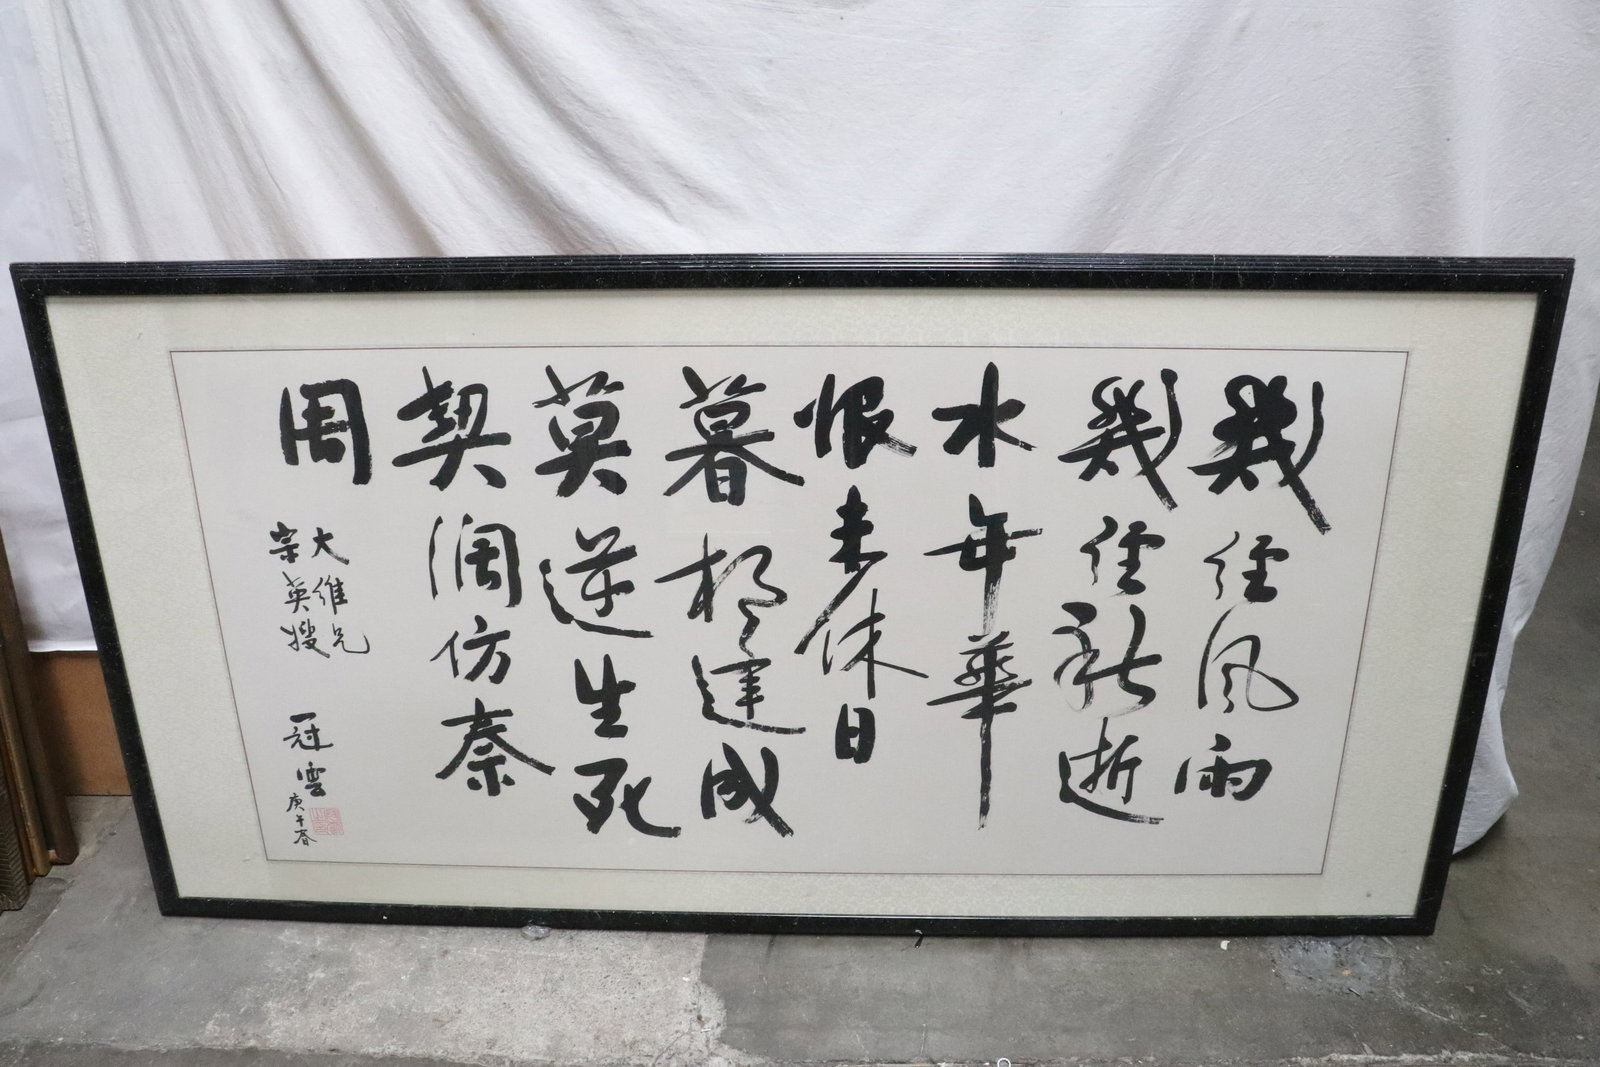 幾經風雨
幾經秋逝
水年華
恨未休日
暮相逢成
莫逆生死
契濶仿秦
周
大維兄
宗英嫂
冠雲
庚午春